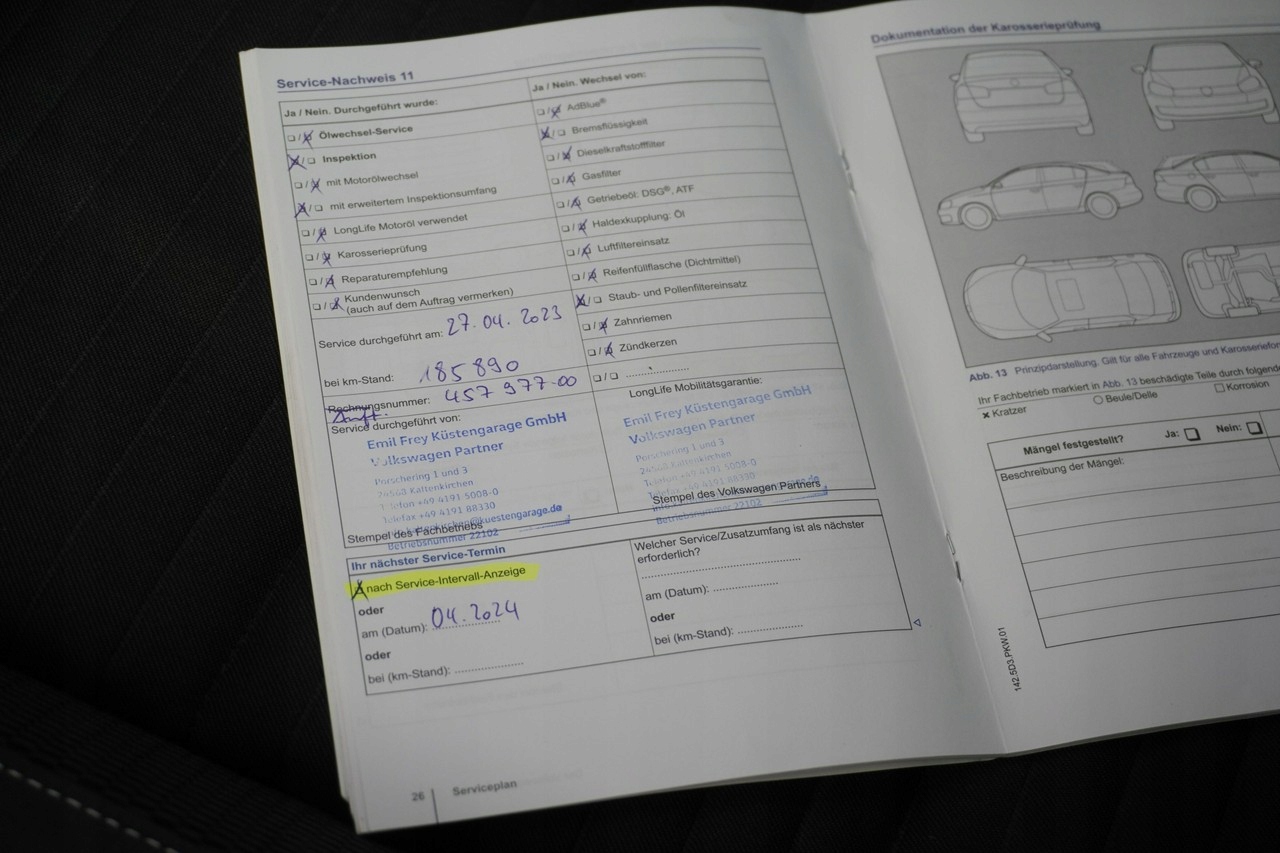 Service-Nachweis 11
Ja / Nein. Durchgeführt wurde:
❏/❏ Ölwechsel-Service
❏/❏ Inspektion
❏/❏ mit Motorölwechsel
❏/❏ mit erweitertem Inspektionsumfang
❏/❏ LongLife Motoröl verwendet
❏/❏ Karosserieprüfung
❏/❏ Reparaturempfehlung
❏/❏ Kundenwunsch
(auch auf dem Auftrag vermerken)
Service durchgeführt am: 27.04.2023
bei km-Stand: 185 890
Rechnungsnummer: 457 977-00
Service durchgeführt von:
Emil Frey Küstengarage GmbH
Volkswagen Partner
Porschering 1 und 3
24568 Kaltenkirchen
Telefon +49 4191 5008-0
Telefax +49 4191 88330
Betriebsnummer 22102
Stempel des Fachbetriebs
Ja / Nein. Wechsel von:
❏/❏ AdBlue®
❏/❏ Bremsflüssigkeit
❏/❏ Dieselkraftstofffilter
❏/❏ Gasfilter
❏/❏ Getriebeöl: DSG®, ATF
❏/❏ Haldexkupplung: Öl
❏/❏ Luftfiltereinsatz
❏/❏ Reifenfüllflasche (Dichtmittel)
❏/❏ Staub- und Pollenfiltereinsatz
❏/❏ Zahnriemen
❏/❏ Zündkerzen
❏/❏ ....................
LongLife Mobilitätsgarantie:
Emil Frey Küstengarage GmbH
Volkswagen Partner
Porschering 1 und 3
24568 Kaltenkirchen
Telefon +49 4191 5008-0
Telefax +49 4191 88330
Betriebsnummer 22102
Stempel des Volkswagen Partners
Ihr nächster Service-Termin
nach Service-Intervall-Anzeige
oder
am (Datum): 04.2024
oder
bei (km-Stand): ....................
Welcher Service/Zusatzumfang ist als nächster
erforderlich?
am (Datum): ....................
oder
bei (km-Stand): ....................
26 Serviceplan
Dokumentation der Karosserieprüfung
Abb. 13 Prinzipdarstellung. Gilt für alle Fahrzeuge und
Ihr Fachbetrieb markiert in Abb. 13 beschädigte Teile durch
× Kratzer ○ Beule/Delle □ Korrosion
Mängel festgestellt? Ja: ❏ Nein: ❏
Beschreibung der Mängel:
142.5D3.PKW.01